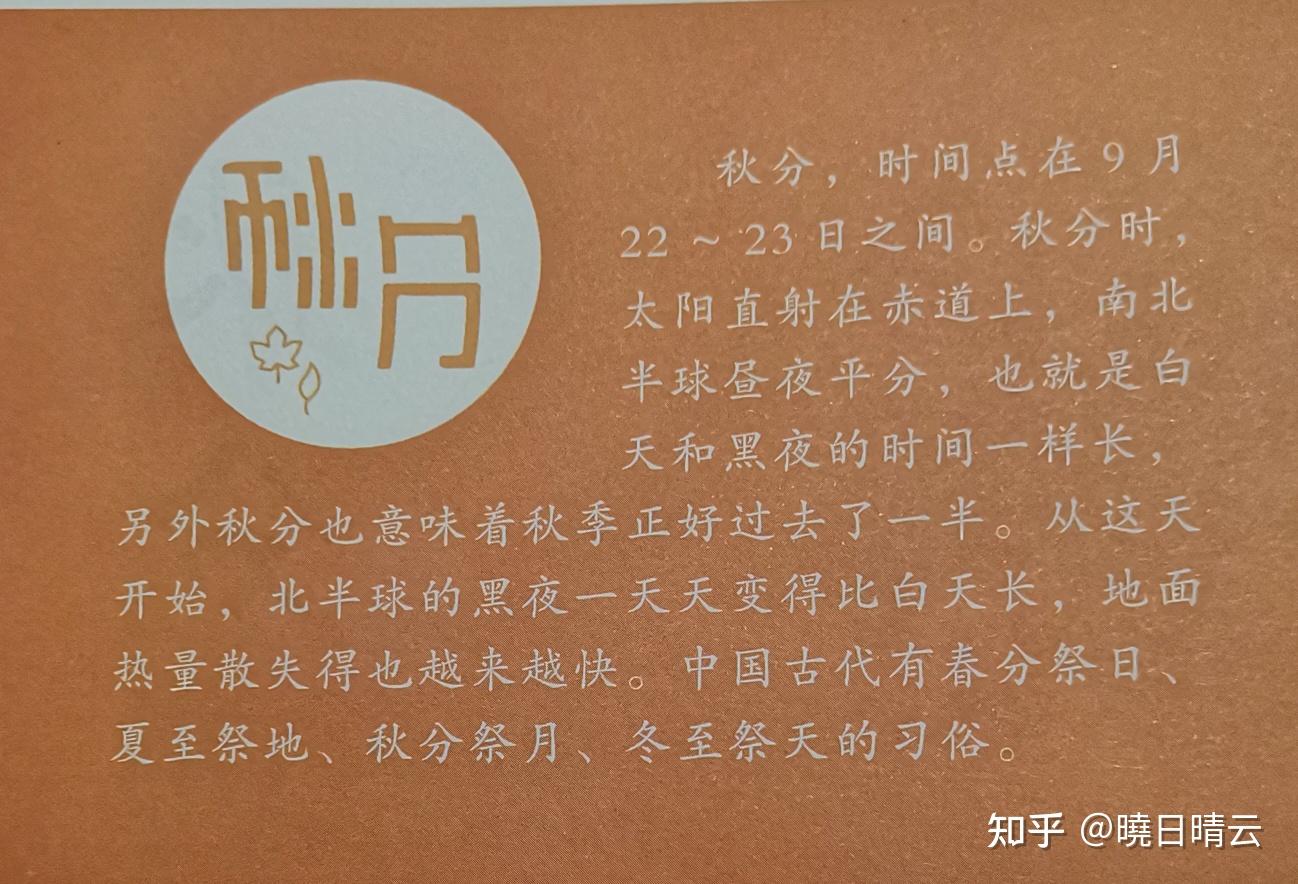 秋分
秋分，时间点在 9 月
22 ~ 23 日之间。秋分时，
太阳直射在赤道上，南北
半球昼夜平分，也就是白
天和黑夜的时间一样长，
另外秋分也意味着秋季正好过去了一半。从这天
开始，北半球的黑夜一天天变得比白天长，地面
热量散失得也越来越快。中国古代有春分祭日、
夏至祭地、秋分祭月、冬至祭天的习俗。
知乎 @曉日晴云